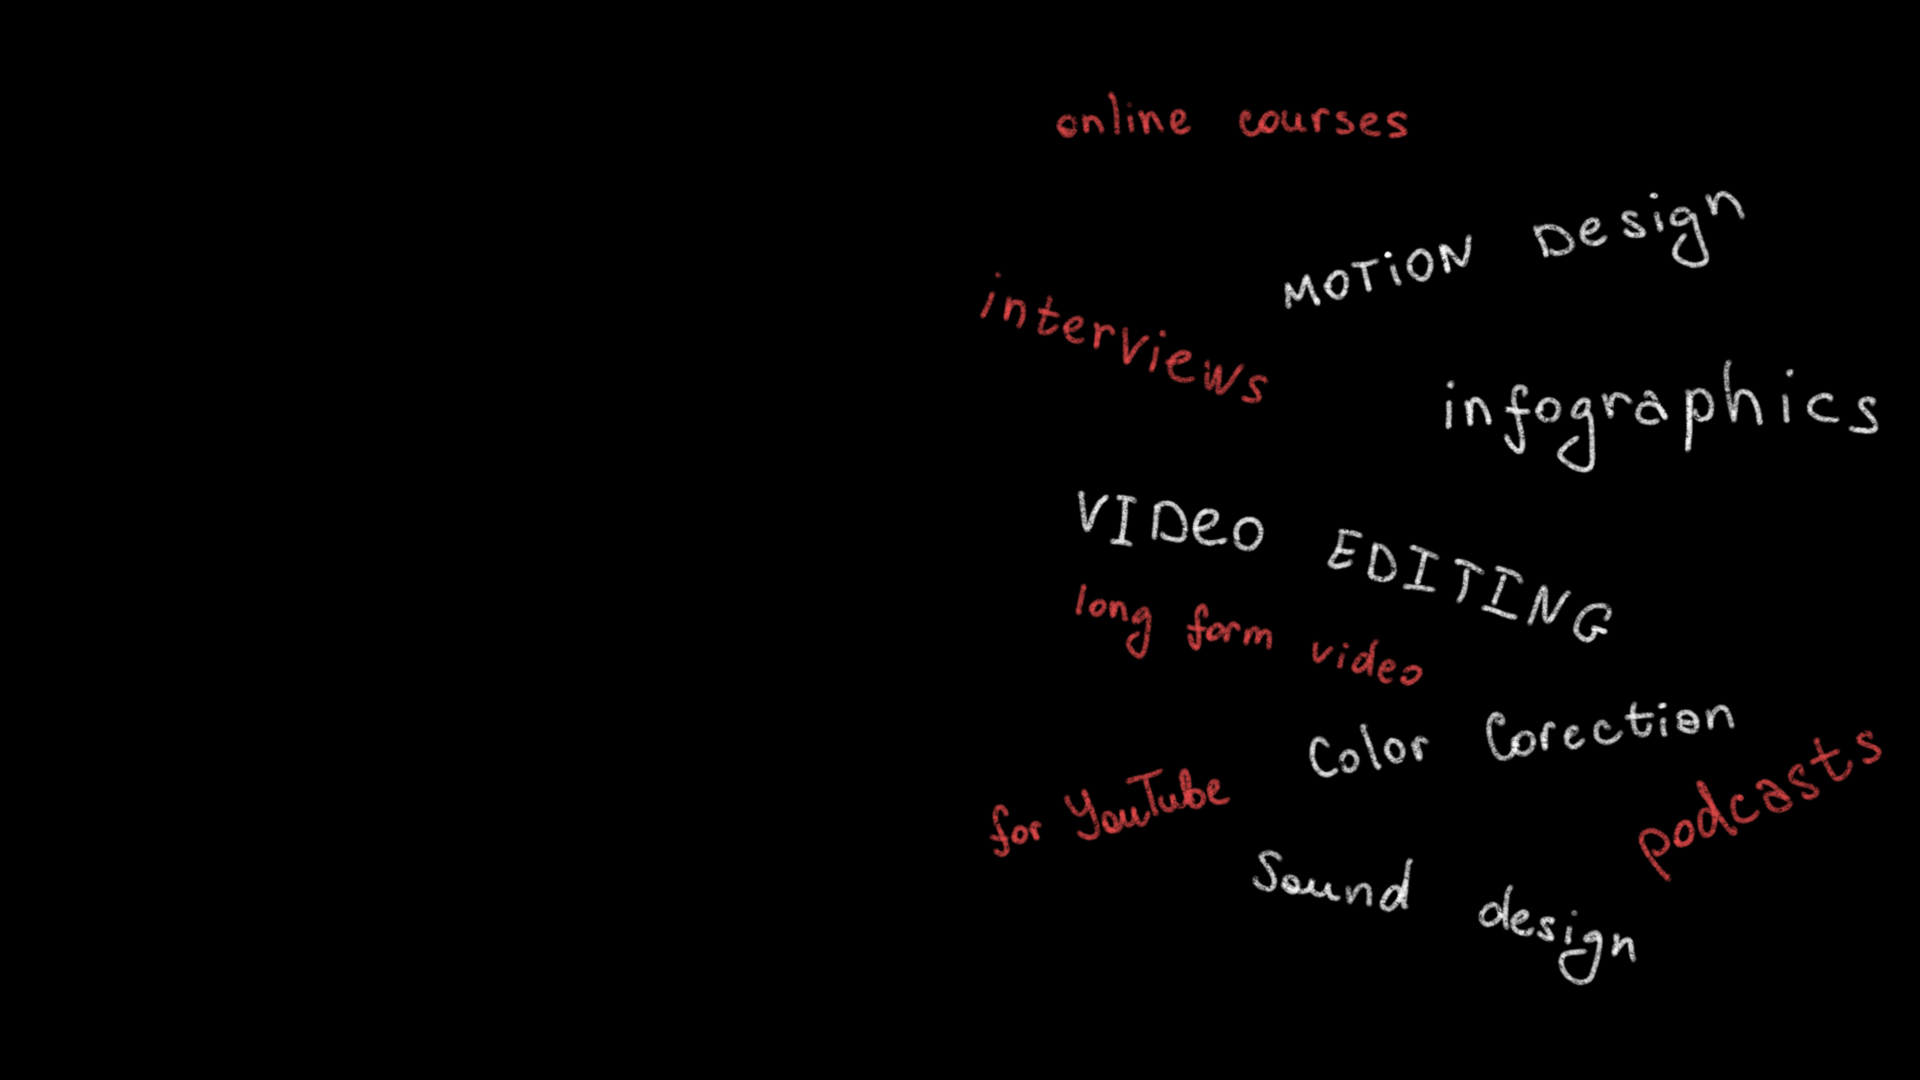 online courses
MOTiON Design
interviews
infographics
VIDeO EDITING
long form video
Color Corection
for YouTube
podcasts
Sound design